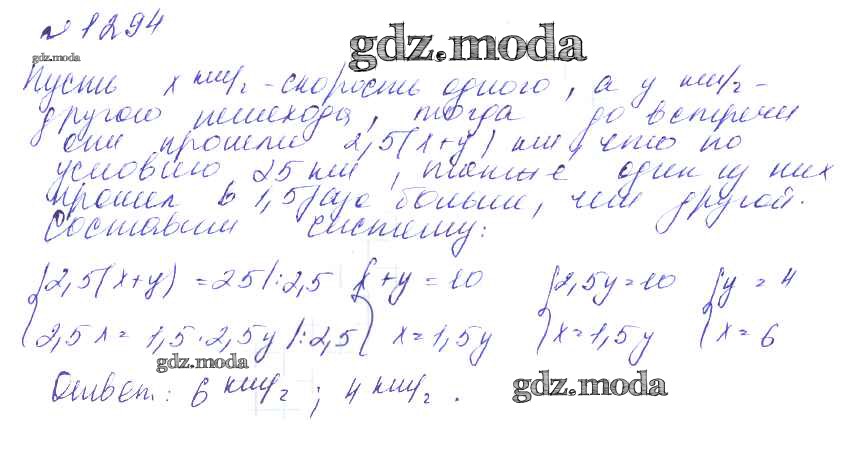 № 1294
gdz.moda
gdz.moda
Пусть x км/ч - скорость одного, а y км/ч -
другого пешехода, тогда до встречи
они прошли 2,5(x+y) км, что по
условию 25 км, также один из них
прошел в 1,5 раза больше, чем другой.
Составим систему:
{2,5(x+y) = 25 |:2,5 {x+y = 10 {2,5y=10 {y = 4
{2,5x = 1,5·2,5y |:2,5 {x=1,5y {x=1,5y {x=6
gdz.moda
Ответ: 6 км/ч ; 4 км/ч.
gdz.moda